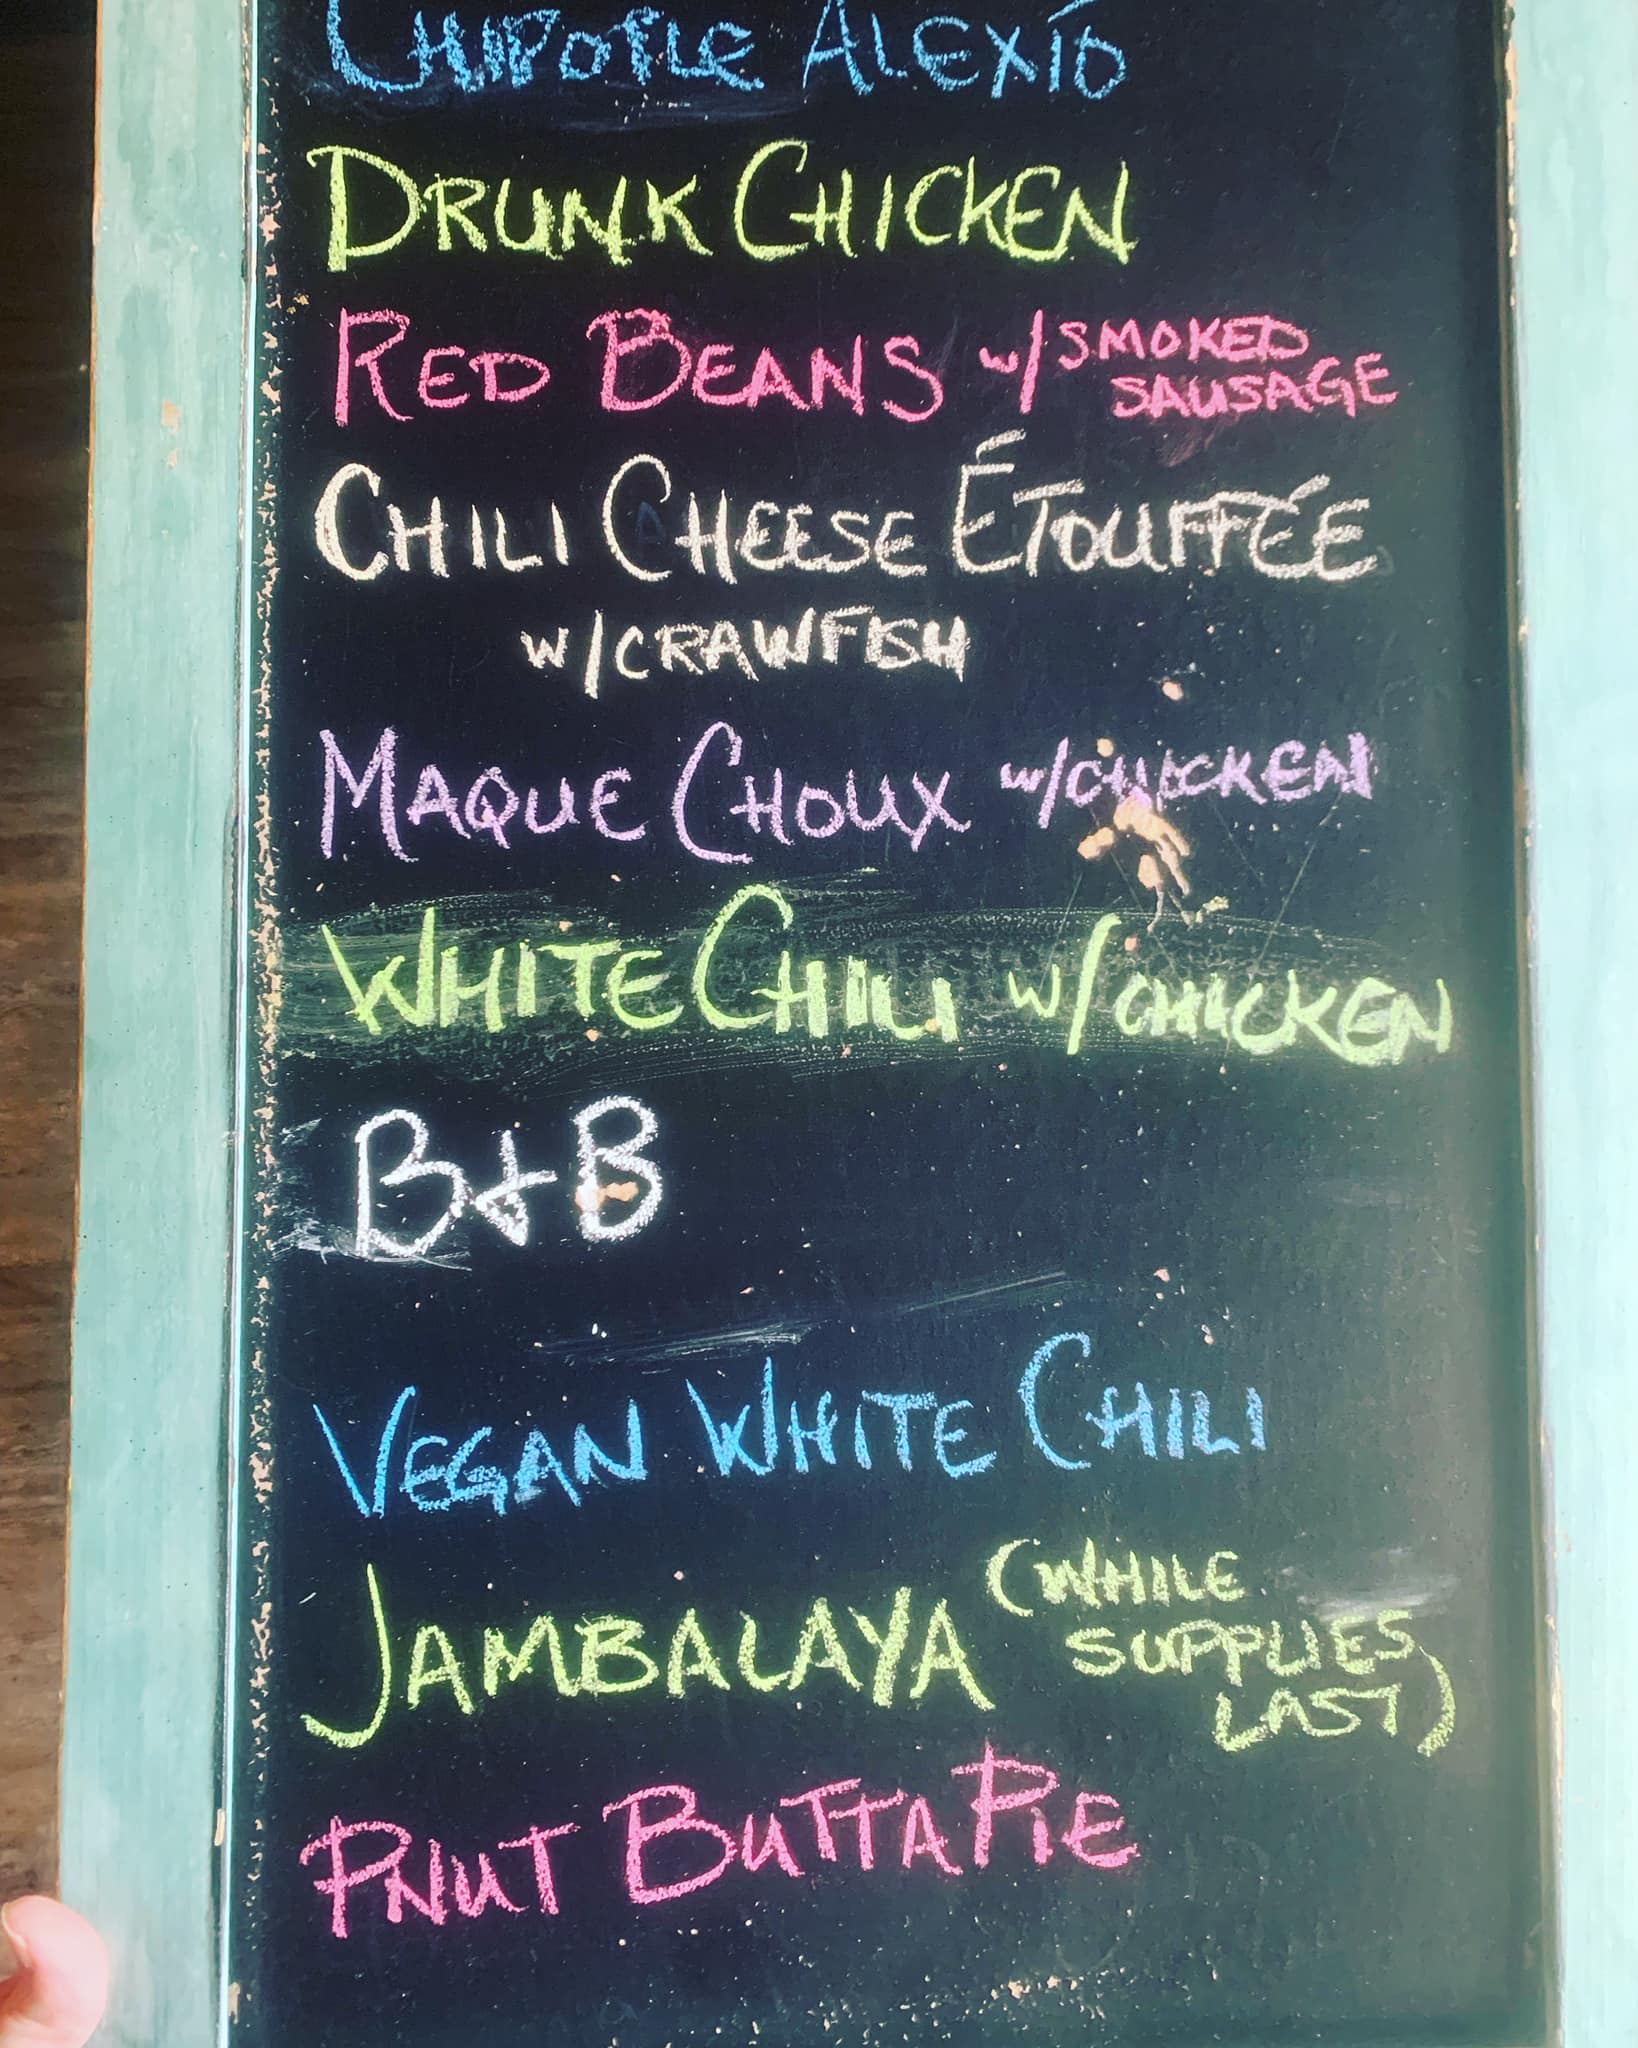 CHIPOTLE ALEXIÓ
DRUNK CHICKEN
RED BEANS w/ SMOKED
SAUSAGE
CHILI CHEESE ÉTOUFFÉE
w/CRAWFISH
MAQUE CHOUX w/CHICKEN
WHITE CHILI w/CHICKEN
B+B
VEGAN WHITE CHILI
JAMBALAYA (WHILE
SUPPLIES
LAST)
PNUT BUTTA PIE